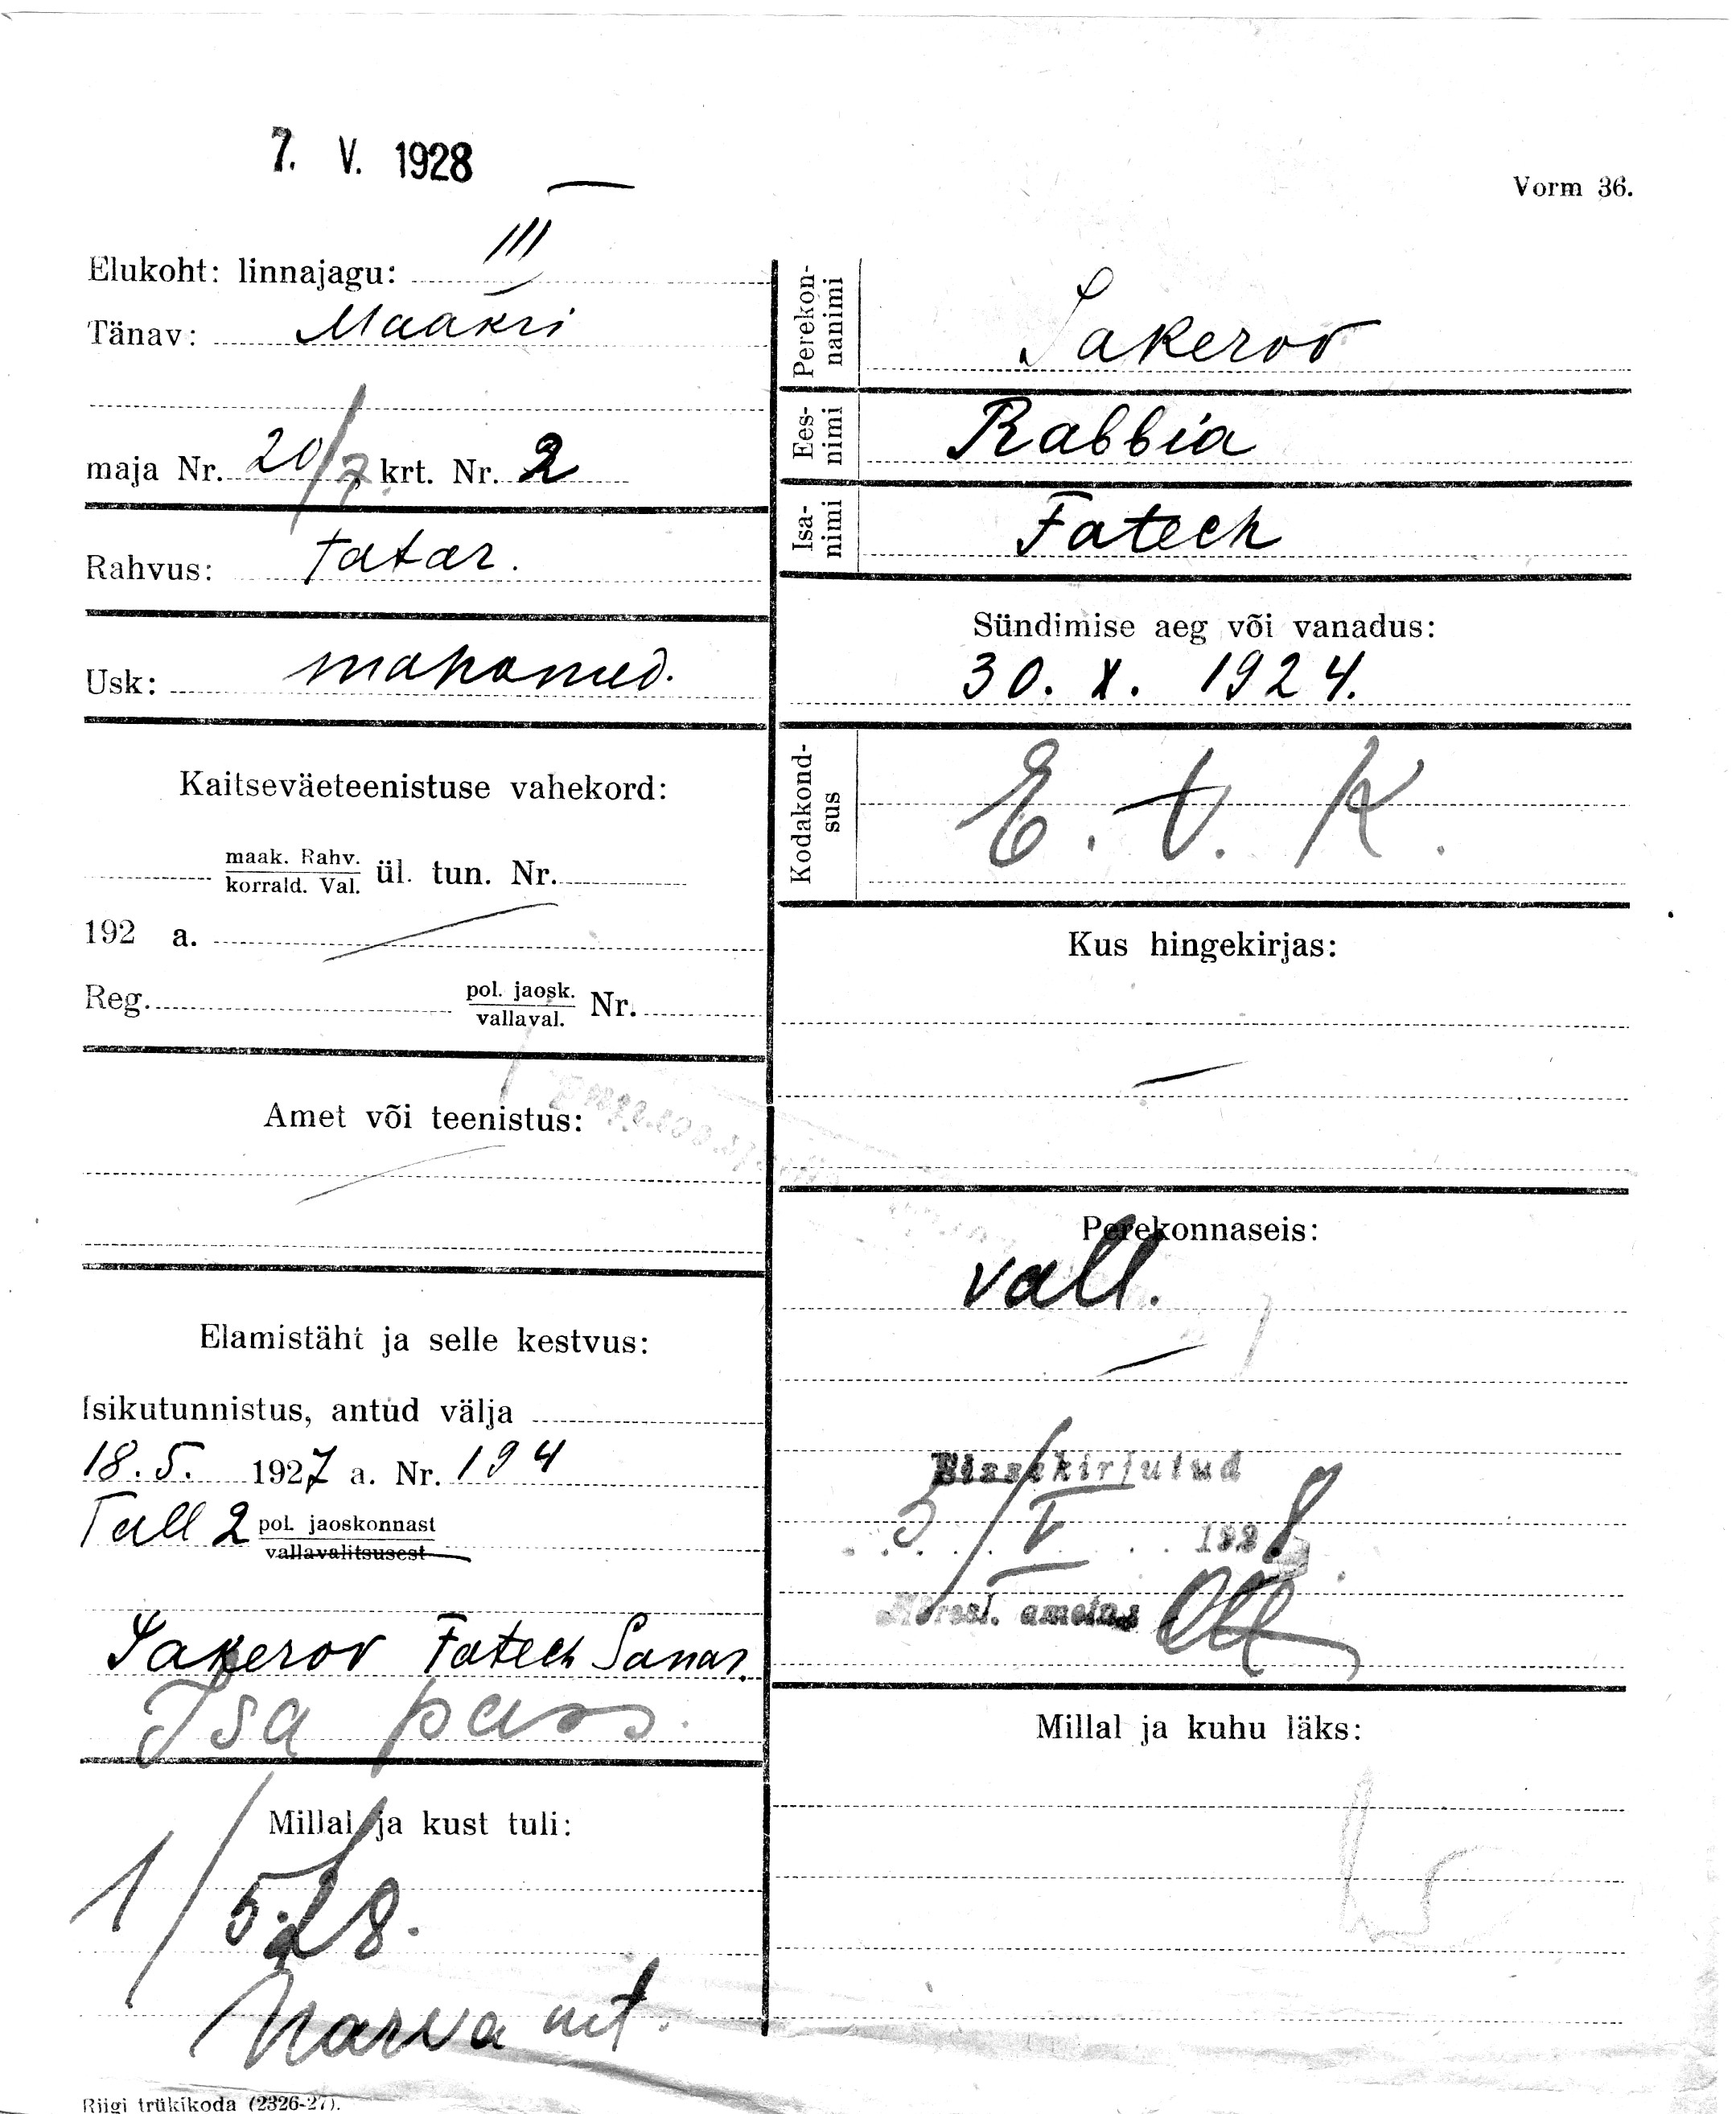 7. V. 1928
Vorm 36.
Elukoht: linnajagu: III
Tänav: Maakri
maja Nr. 20/7 krt. Nr. 2
Rahvus: Tatar.
Usk: mahomed.
Kaitseväeteenistuse vahekord:
maak. Rahv.
korrald. Val. ül. tun. Nr.
192 a.
Reg. pol. jaosk.
vallaval. Nr.
Amet või teenistus:
Elamistäht ja selle kestvus:
Isikutunnistus, antud välja
18.5. 1927 a. Nr. 194
Tall 2 pol. jaoskonnast
vallavalitsusest
Sakerov Fatech
Isa pass.
Millal ja kust tuli:
1/5.28.
Narva mt.
Riigi trükikoda (2326-27).
Perekon-
nanimi
Sakerov
Ees-
nimi
Rabbia
Isa-
nimi
Fatech
Sündimise aeg või vanadus:
30. X. 1924.
Kodakond-
sus
E. V. K.
Kus hingekirjas:
Perekonnaseis:
vall.
Sissekirjutud
5/V 1928
Millal ja kuhu läks: